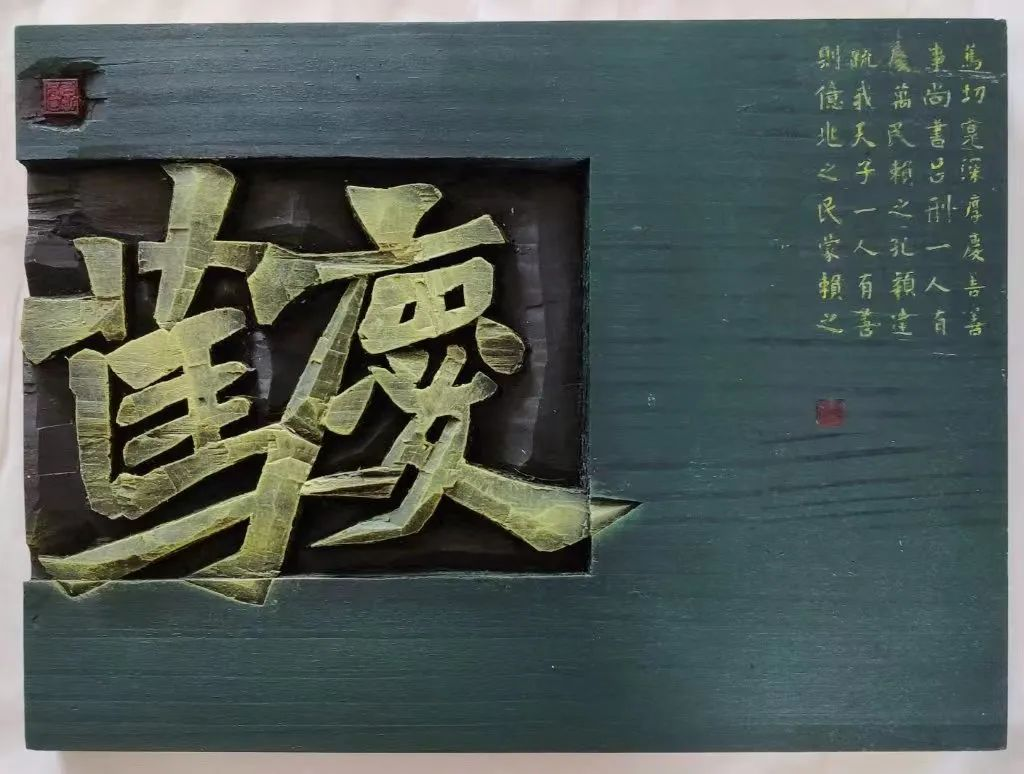 慶
篤切寔深厚慶吉善
事尚書呂刑一人有
慶萬民賴之孔穎達
疏我天子一人有善
則億兆之民蒙賴之